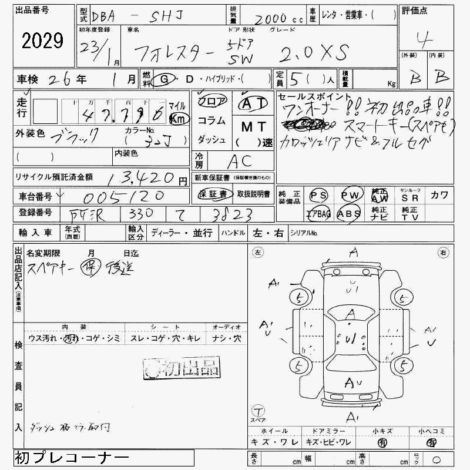 出品番号 型式 DBA - SHJ 排気量 2000 cc 車歴 レンタ・営業車・( ) 評価点
2029 初年度登録 23/1月 車名 フォレスター ドア 形状 5ドア SW グレード 2.0XS 4
車検 26年 1月 燃料 G D・ハイブリッド・( ) 定員 5( )人 積載量 Kg 外装 B 内装 B
走行 十万 万 千 百 十 一 47,796 マイル Km フロア AT セールスポイント
コラム MT ワンオーナー!! 初出品車!!
外装色 ブラック カラーNo. 32J ダッシュ ( 速) スマートキー(スペア
内装色 ( ) 冷房 AC カロッツェリアナビ&フルセグ
リサイクル預託済金額 13,420円 新車保証書( )
車台番号 005120 保証書 取扱説明書 純正装備品 PS PW 純正AW サンルーフ SR カワ
登録番号 所沢 330 て 3823 エアBAG ABS 純正ナビ 純正TV
輸入車 年式(西暦) 輸入区分 ディーラー・並行 ハンドル 左・右 シリアルNo.
出品店記入 名変期限 月 日迄
スペアキー 保 後送
検査員記入
内装 シート オーディオ
ウス汚れ・汚れ・コゲ・シミ スレ・コゲ・穴・キレ ナシ・穴
初出品
左 右
A
A
5 5
A' A U
U
5 5
A U
A
T スペア
ホイール ドアミラー 小キズ 小ヘコミ
キズ・ワレ キズ・ヒビ・ワレ 有 有
初プレコーナー 長さ cm 巾 cm 高さ cm 0